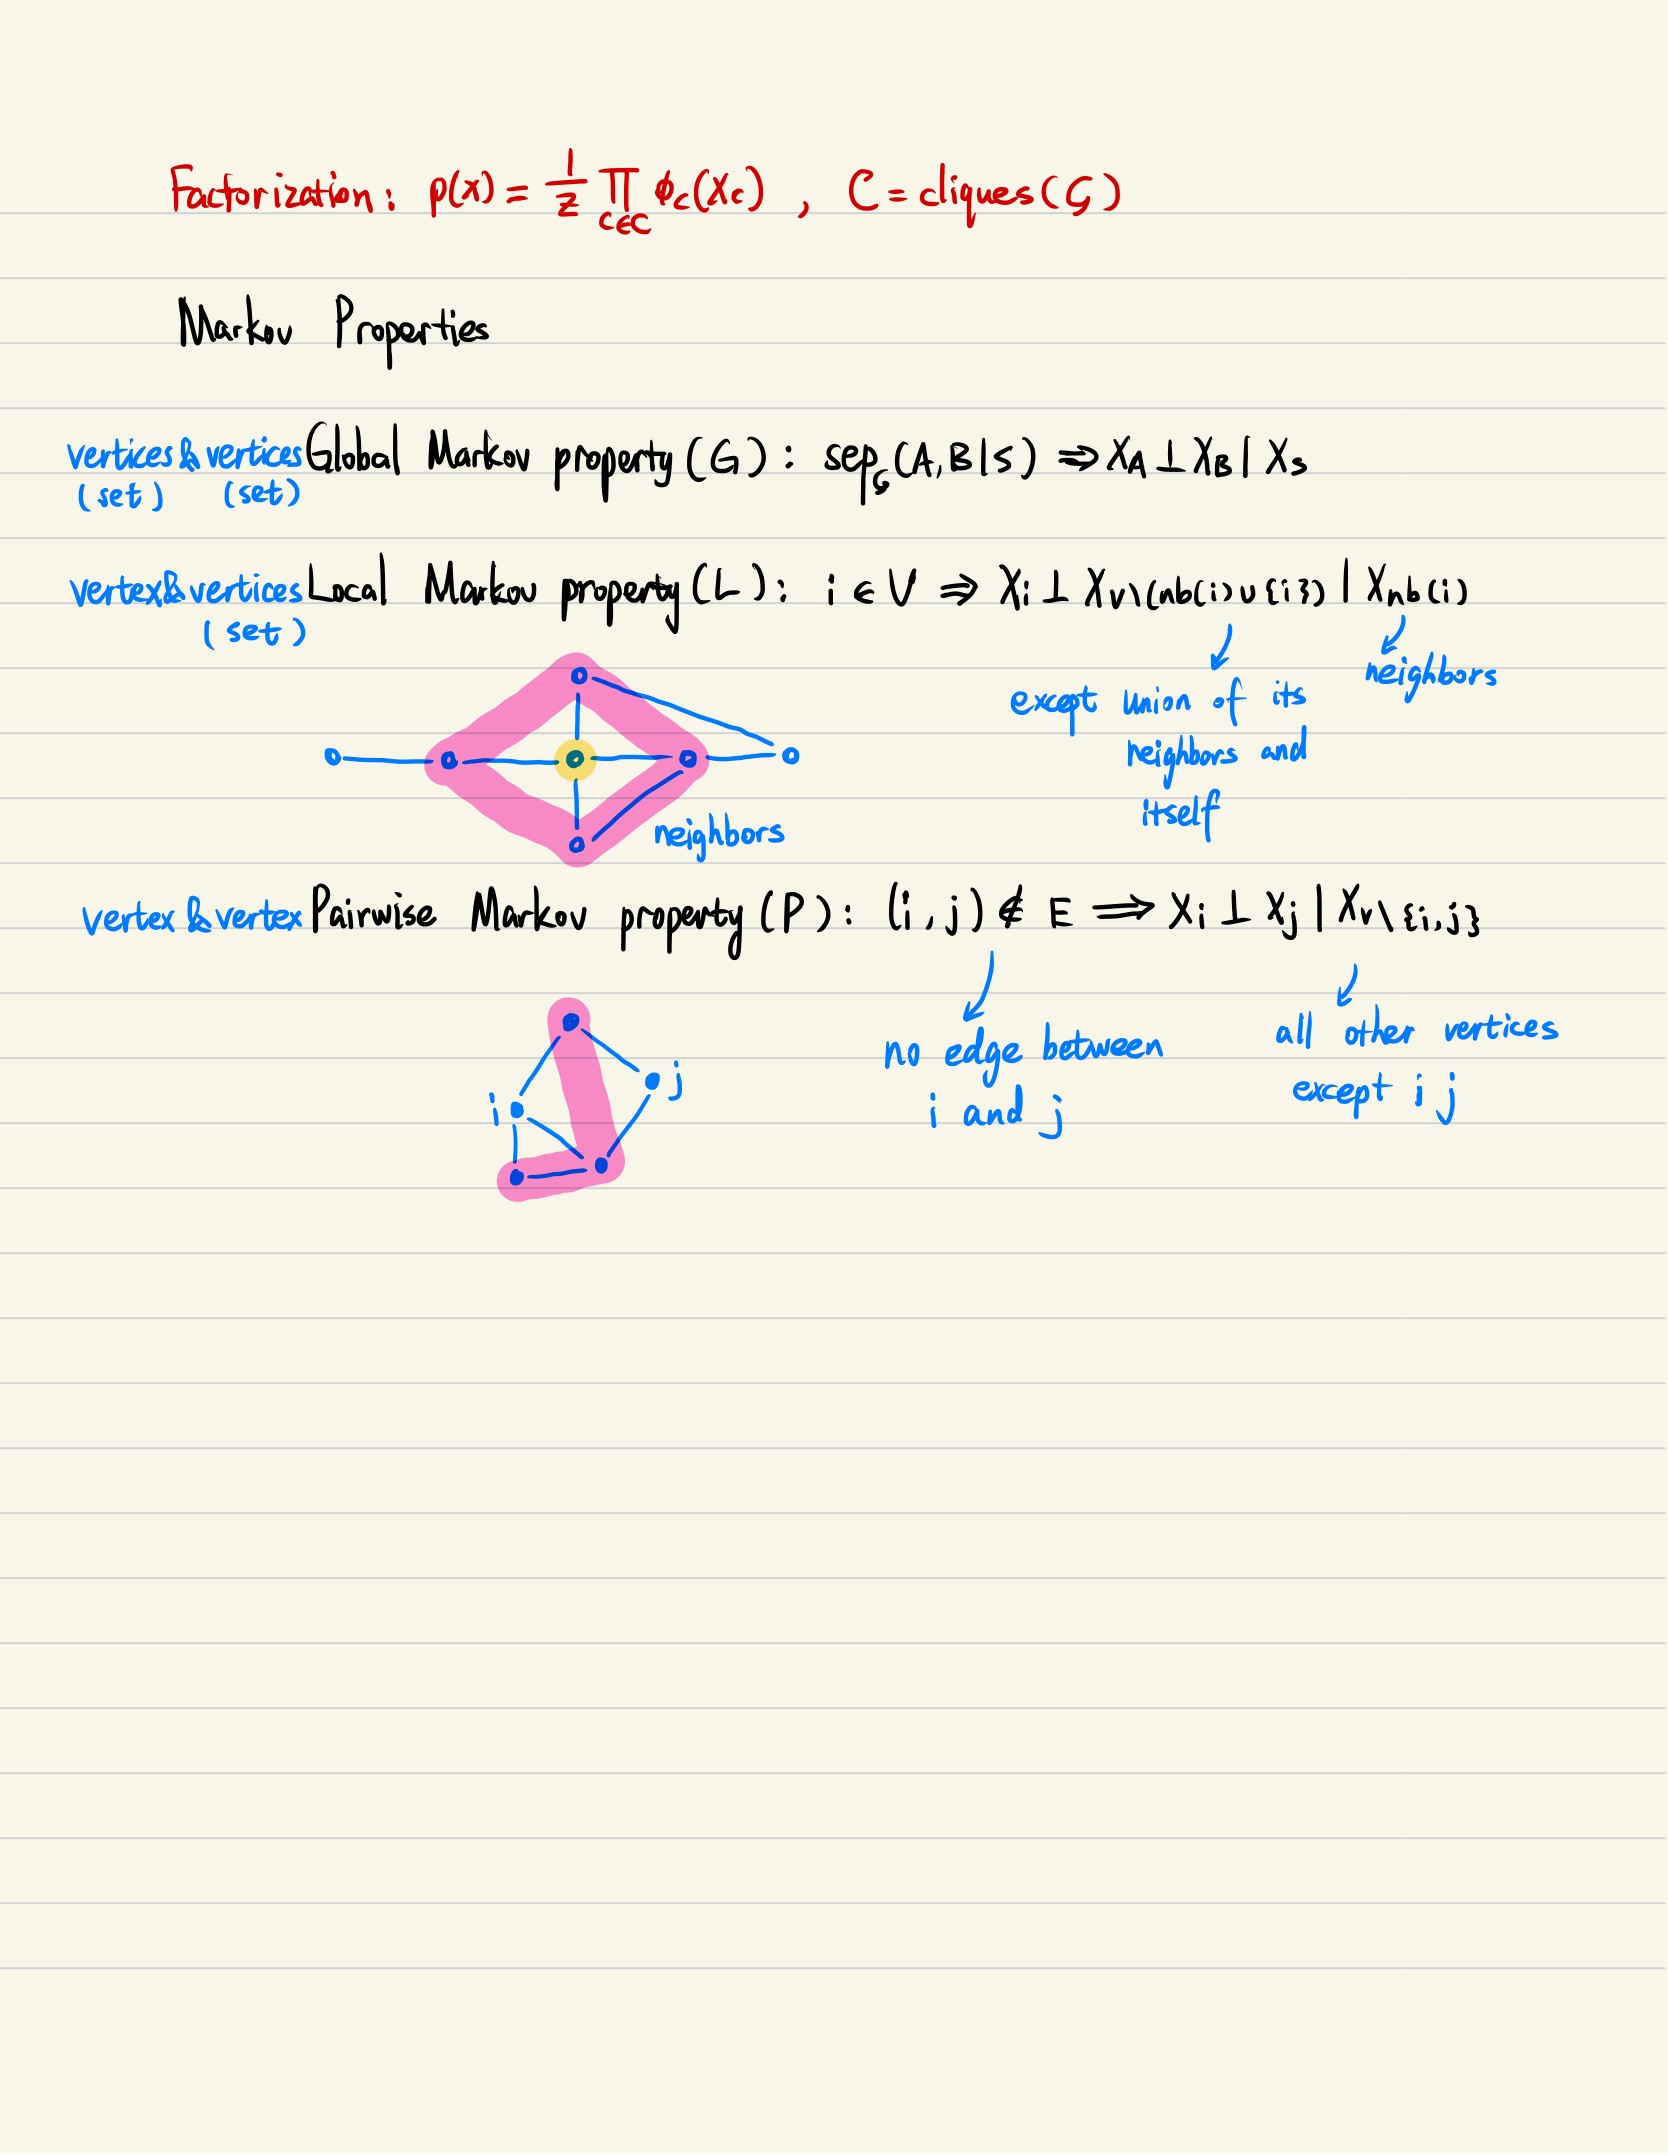 Factorization: p(x) = 1/Z ∏_{c∈C} ϕ_c(X_c) , C = cliques(G)
Markov Properties
vertices & vertices Global Markov property (G): sep_G(A,B|S) ⇒ X_A ⊥ X_B | X_S
(set) (set)
vertex & vertices Local Markov property (L): i ∈ V ⇒ X_i ⊥ X_{V\(nb(i)∪{i})} | X_{nb(i)}
(set)
neighbors
except union of its
neighbors and
itself
neighbors
vertex & vertex Pairwise Markov property (P): (i,j) ∉ E ⟹ X_i ⊥ X_j | X_{V\{i,j}}
i
j
no edge between
i and j
all other vertices
except i j